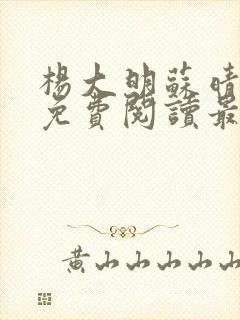 楊大明蘇晴
免費閱讀最
黃山山山山